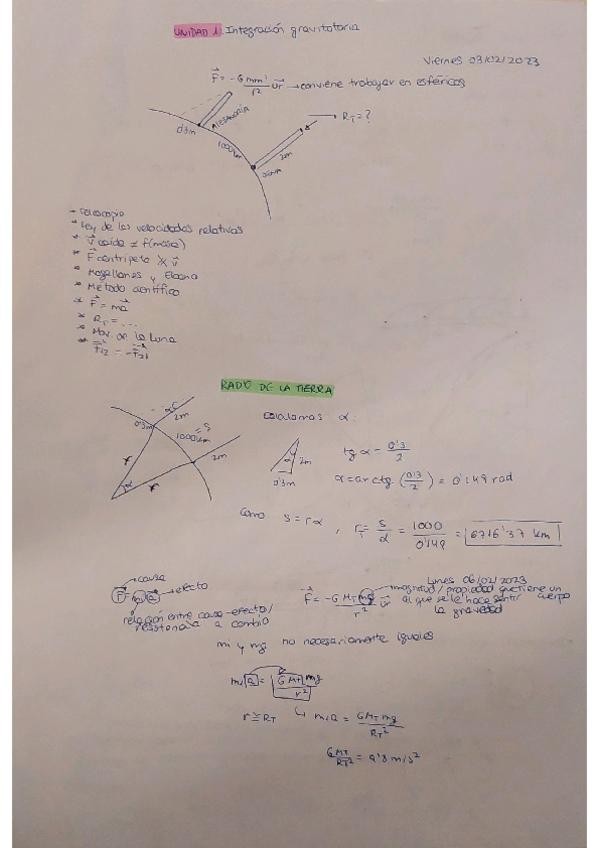 UNIDAD 1. Integración gravitatoria
Viernes 03/02/2023
F = -G mm' / r² ur → conviene trabajar en esféricas
0'3m
ALEJANDRÍA
1000km
2m
→ RT = ?
* Ley de las velocidades relativas
* V caída ≠ f(masa)
* F centrípeta
* Magallanes y Elcano
* Método científico
* F = ma
* RT = ...
* Mov de la Luna
* F12 = -F21
RADIO DE LA TIERRA
α
2m
0'3m
S =
1000km
2m
r
α
r
Calculamos α:
α
2m
0'3m
tg α = 0'3 / 2
α = arctg (0'3 / 2) = 0'149 rad
Como S = rα , rT = S / α = 1000 / 0'149 = 6716'37 km
causa
F = mi a → efecto
relación entre causa-efecto/
resistencia a cambio
Lunes 06/02/2023
F = -G MT mg / r² ur
magnitud/propiedad que tiene un cuerpo
al que se le hace sentir
la gravedad
mi y mg no necesariamente iguales
mi a = G MT mg / r²
r ≅ RT ↳ mi a = G MT mg / RT²
G MT / RT² = 9'8 m/s²